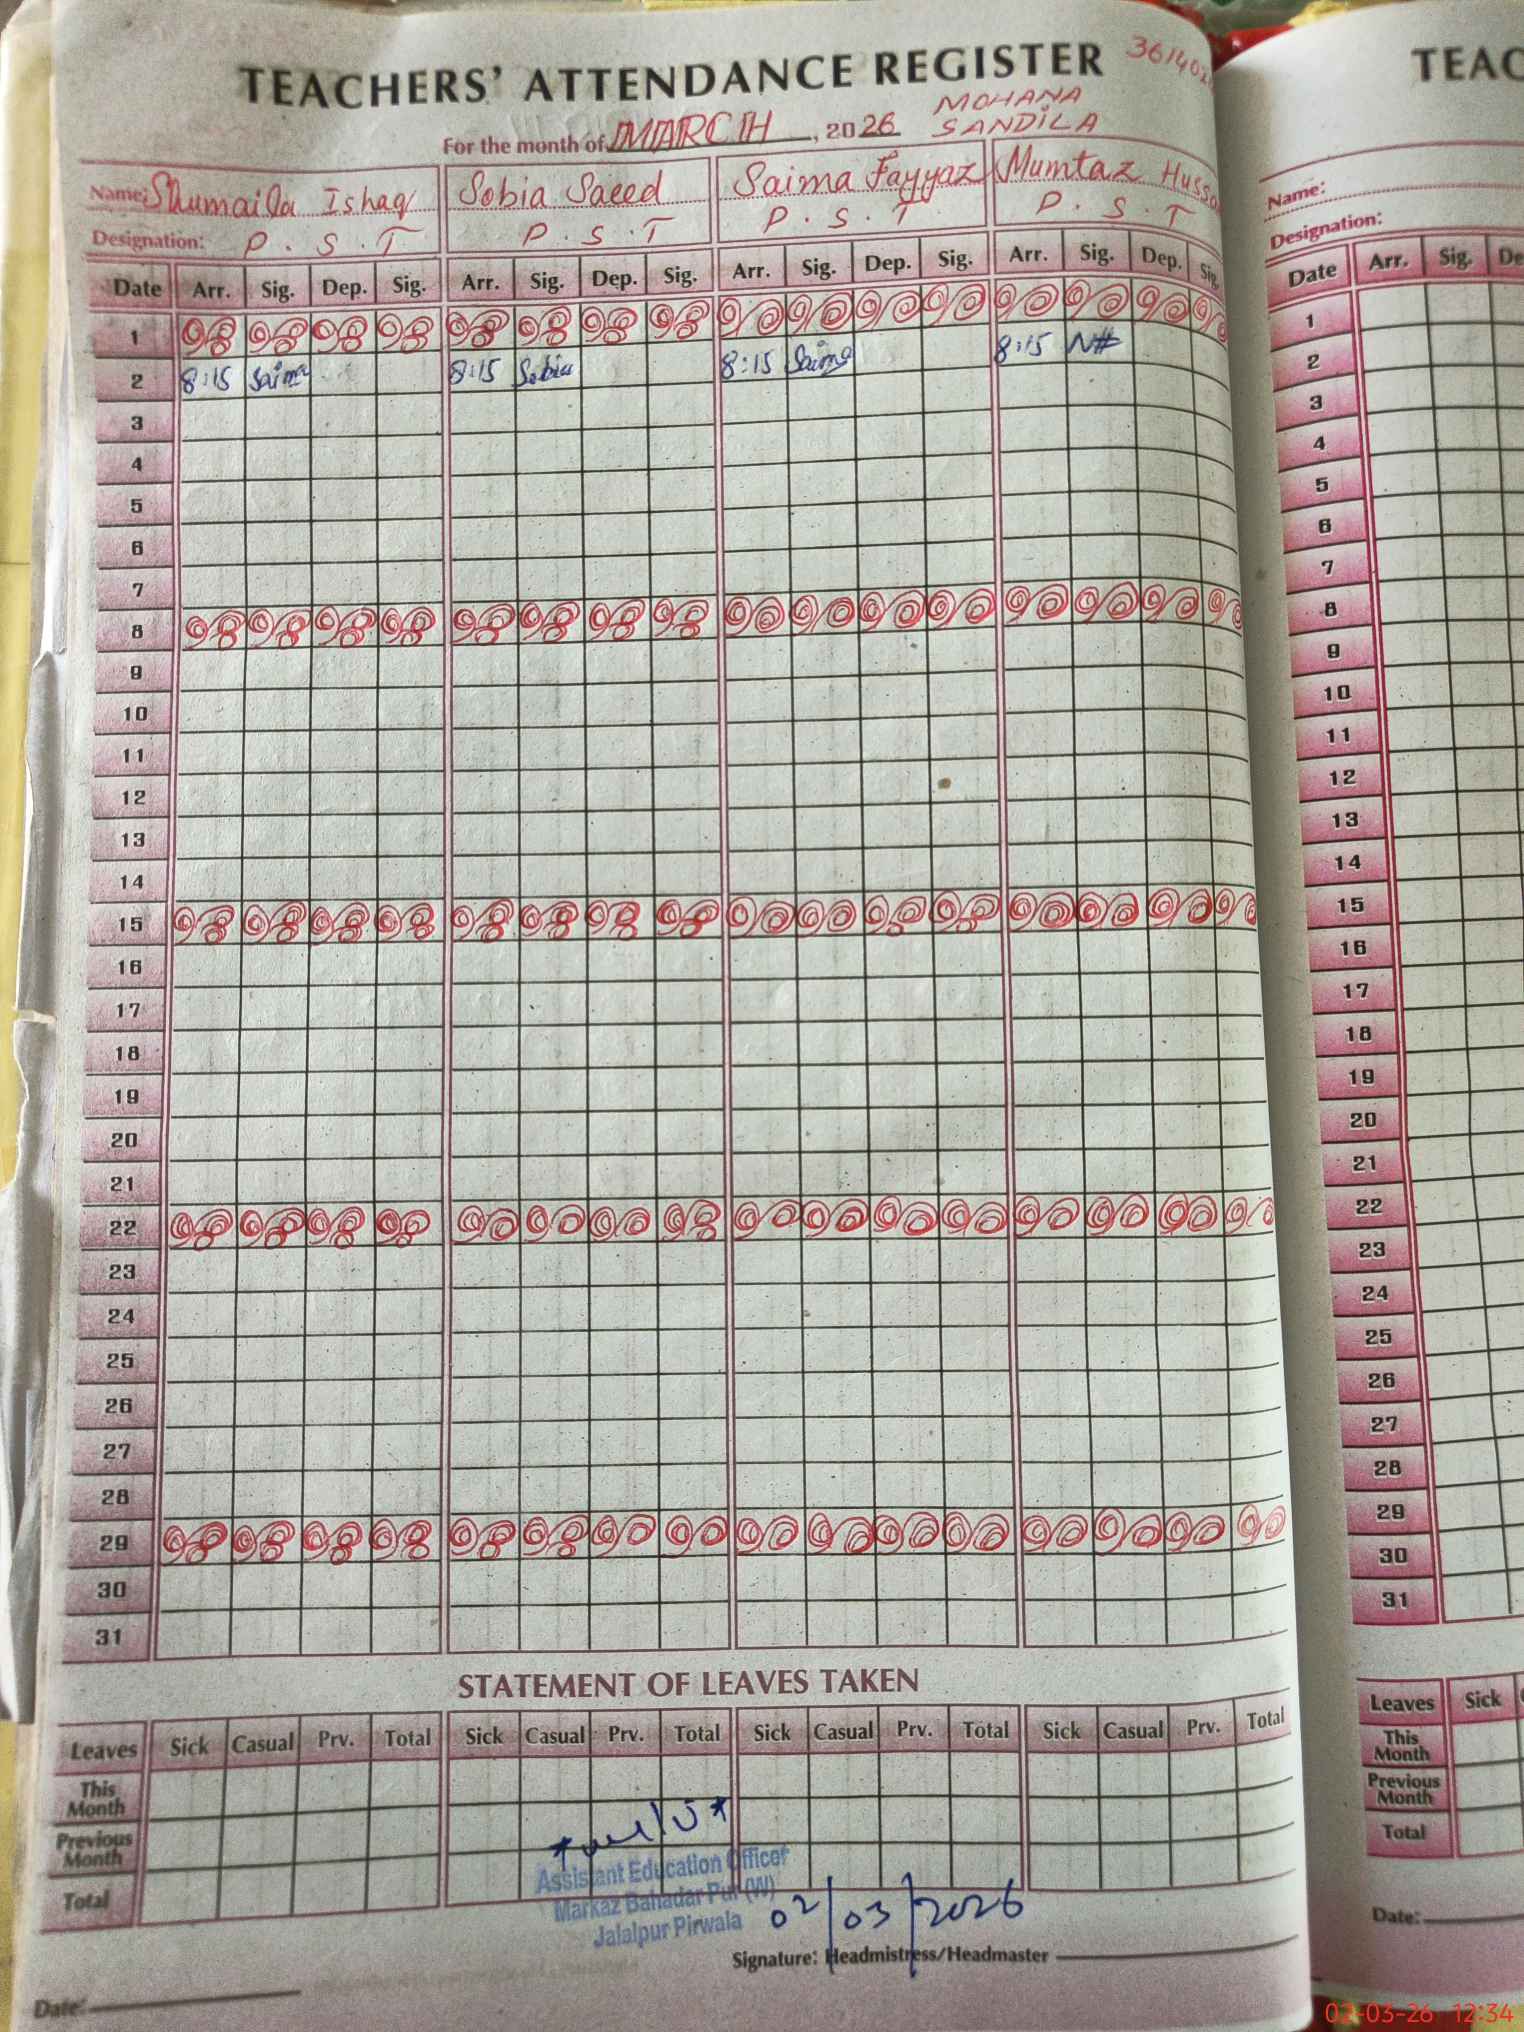 TEACHERS' ATTENDANCE REGISTER
MOHANA
For the month of MARCH, 2026 SANDILA
Name: Shumaila Ishaq Sobia Saeed Saima Fayyaz Mumtaz
Designation: P.S.T P.S.T P.S.T P.S.T
Date Arr. Sig. Dep. Sig. Arr. Sig. Dep. Sig. Arr. Sig. Dep. Sig. Arr. Sig. Dep. Sig.
1
2 8:15 Saima 8:15 Sobia 8:15 Saima 8:15
3
4
5
6
7
8
9
10
11
12
13
14
15
16
17
18
19
20
21
22
23
24
25
26
27
28
29
30
31
STATEMENT OF LEAVES TAKEN
Leaves Sick Casual Prv. Total Sick Casual Prv. Total Sick Casual Prv. Total Sick Casual Prv. Total
This Month
Previous Month
Total
Assistant Education Officer
Markaz Bahadar Pur (W)
Jalalpur Pirwala
02/03/2026
Signature: Headmistress/Headmaster
Date:
TEAC
Name:
Designation:
Date Arr. Sig. De
1
2
3
4
5
6
7
8
9
10
11
12
13
14
15
16
17
18
19
20
21
22
23
24
25
26
27
28
29
30
31
Leaves Sick
This Month
Previous Month
Total
Date:
02-03-26 12:34